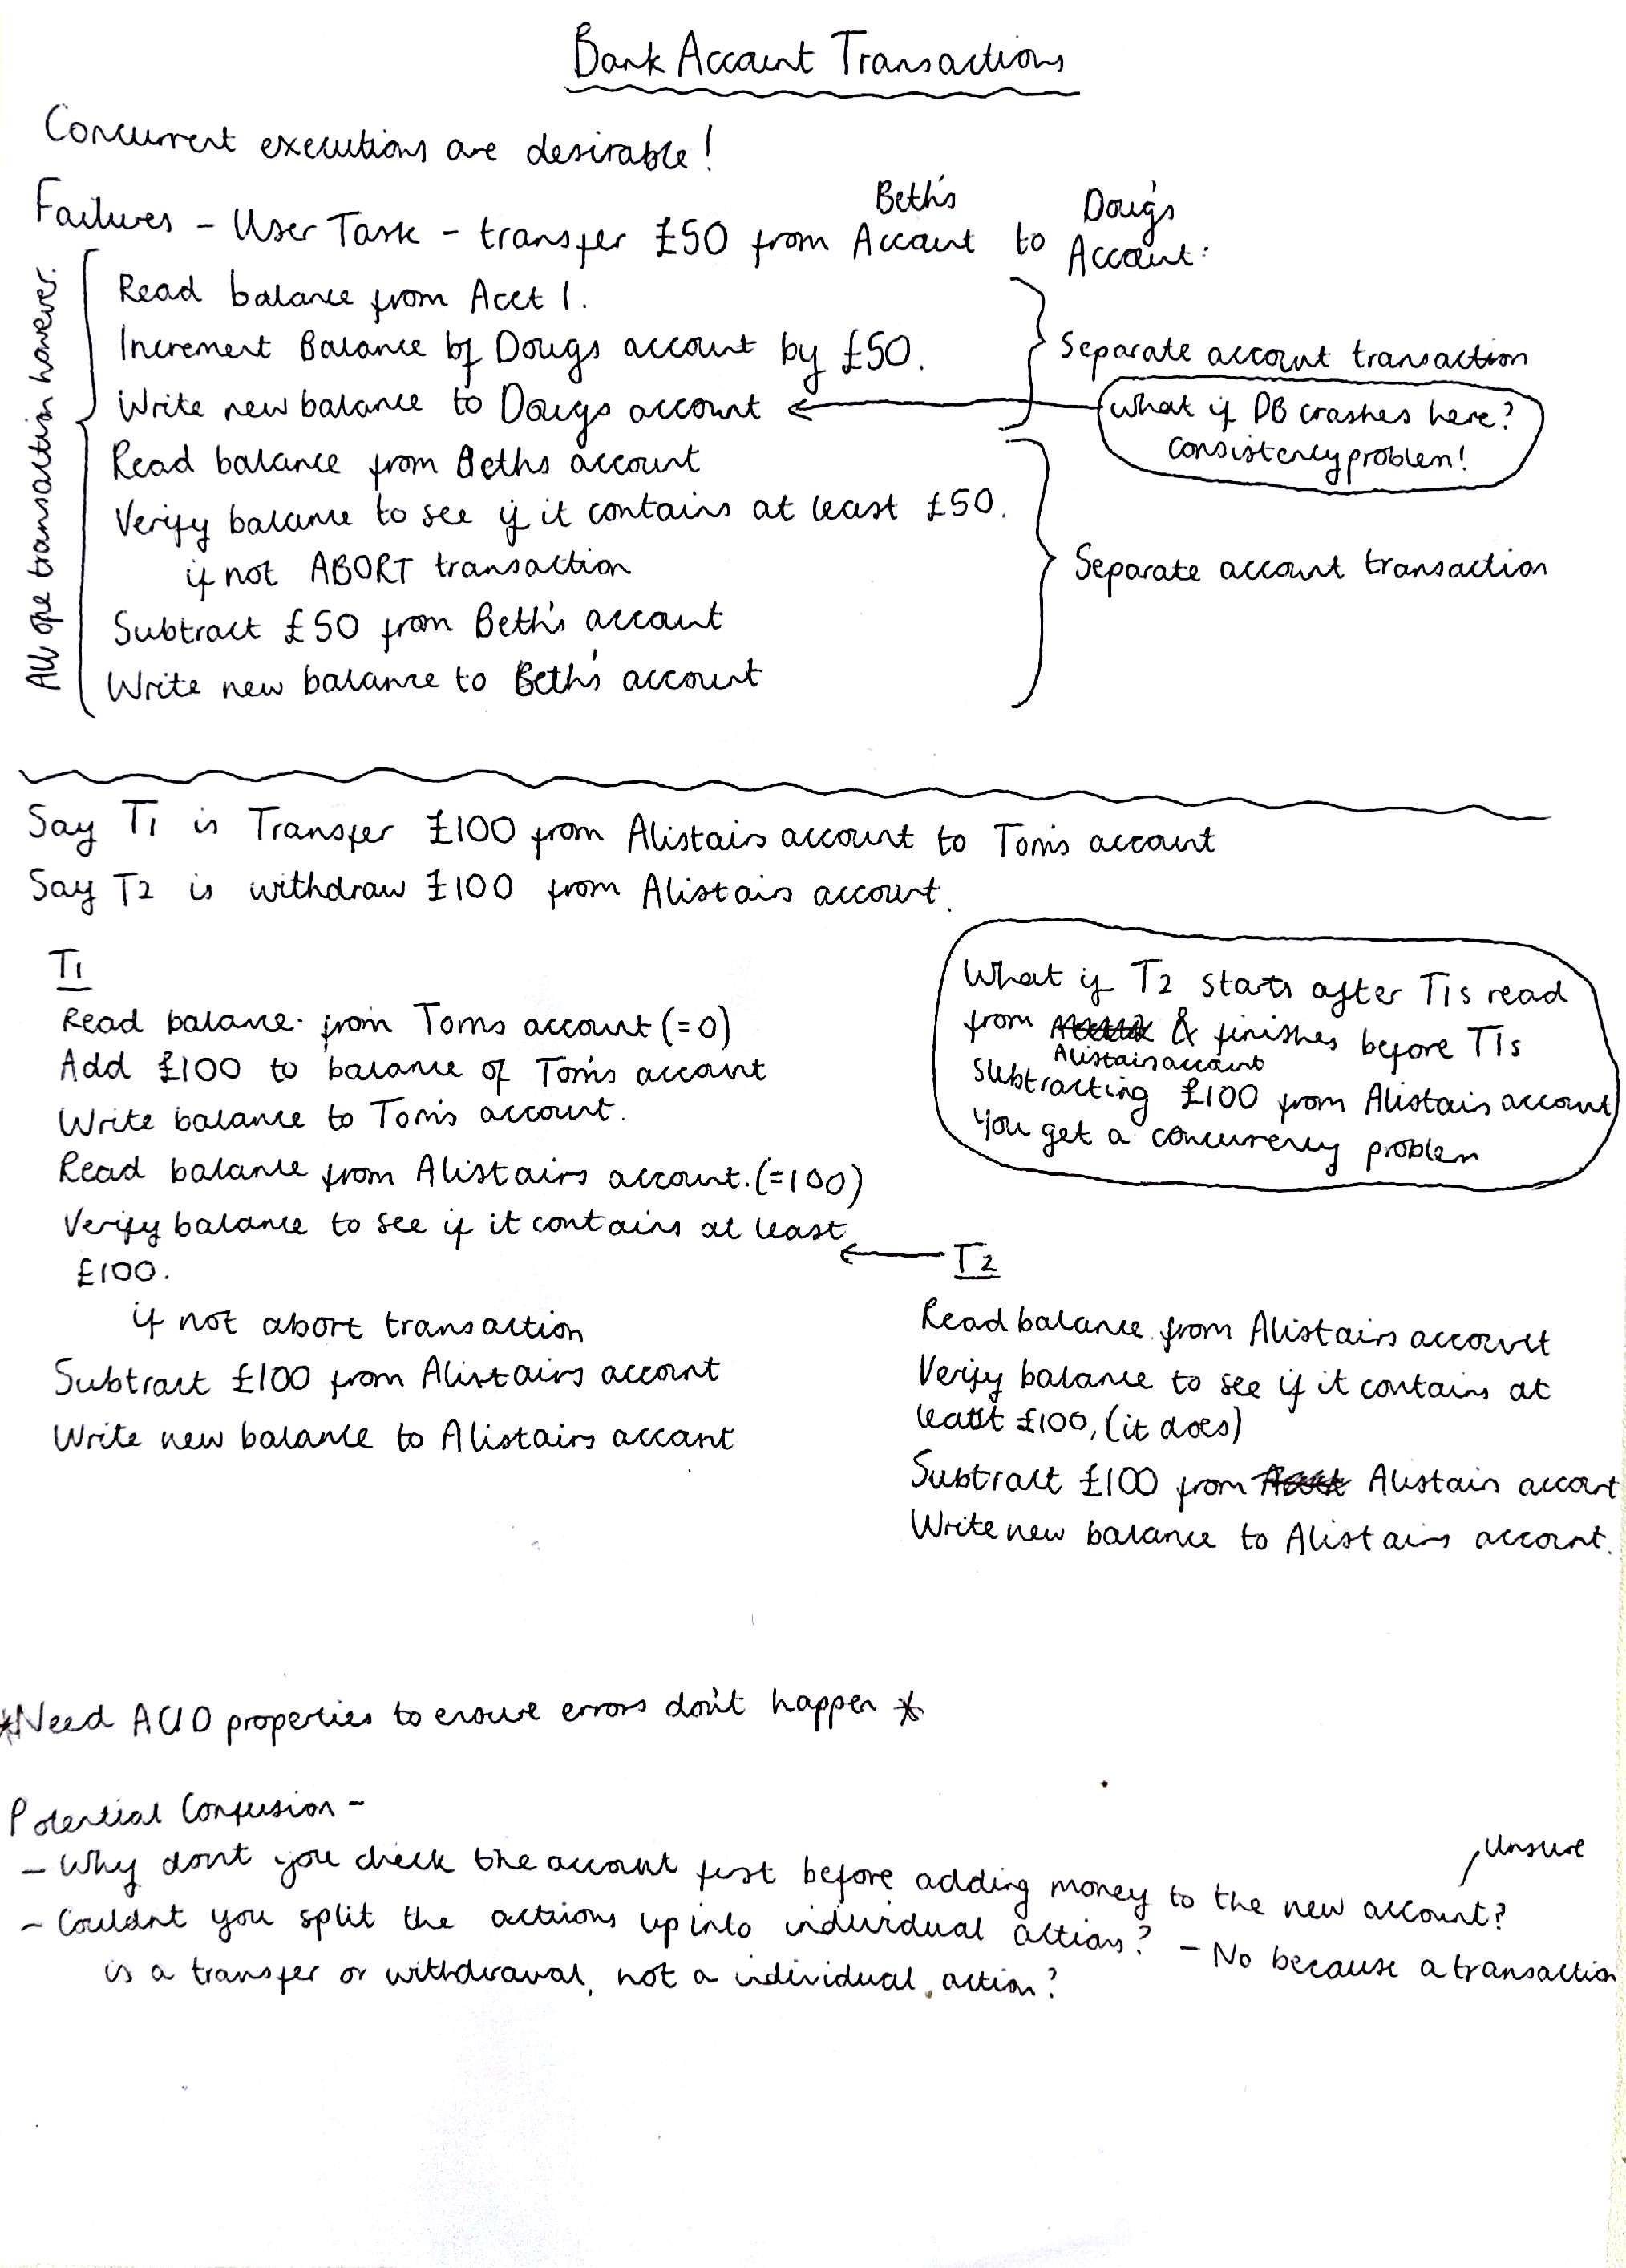 Bank Account Transactions
Concurrent executions are desirable!
Failures - User Task - transfer £50 from Beth's Account to Doug's Account:
All one transaction however.
Read balance from Acct 1.
Increment Balance of Dougs account by £50.
Write new balance to Dougs account
Separate account transaction
What if DB crashes here?
consistency problem!
Read balance from Beths account
Verify balance to see if it contains at least £50.
if not ABORT transaction
Subtract £50 from Beth's account
Write new balance to Beth's account
Separate account transaction
Say T1 is Transfer £100 from Alistairs account to Tom's account
Say T2 is withdraw £100 from Alistairs account.
T1
Read balance from Toms account (=0)
Add £100 to balance of Tom's account
Write balance to Tom's account.
Read balance from Alistairs account. (=100)
Verify balance to see if it contains at least
£100.
if not abort transaction
Subtract £100 from Alistairs account
Write new balance to Alistairs account
What if T2 starts after T1s read
from Alistairs account & finishes before T1s
subtracting £100 from Alistairs account
you get a concurrency problem
T2
Read balance from Alistairs account
Verify balance to see if it contains at
least £100, (it does)
Subtract £100 from Alistairs account
Write new balance to Alistairs account.
*Need ACID properties to ensure errors don't happen *
Potential Confusion -
- Why don't you check the account first before adding money to the new account?
Unsure
- Couldn't you split the actions up into individual actions? - No because a transaction
is a transfer or withdrawal, not a individual action?